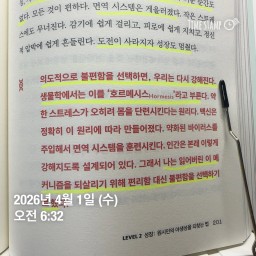 모든 것이 편하다. 면역 시스템은 게을러졌다. 작은 스트레스에도 무너진다. 감기에 쉽게 걸리고, 피로에 쉽게 지치고, 정신
압박에 쉽게 흔들린다. 도전이 사라지자 성장도 멈췄다.
의도적으로 불편함을 선택하면, 우리는 다시 강해진다.
생물학에서는 이를 '호르메시스Hormesis'라고 부른다. 약
한 스트레스가 오히려 몸을 단련시킨다는 원리다. 백신은
정확히 이 원리에 따라 만들어졌다. 약화된 바이러스를
주입해서 면역 시스템을 훈련시킨다. 인간은 본래 이렇게
강해지도록 설계되어 있다. 그래서 나는 잃어버린 이 메
커니즘을 되살리기 위해 편리함 대신 불편함을 선택하기
2026년 4월 1일 (수)
오전 6:32
LEVEL 2
TIMESTAMP